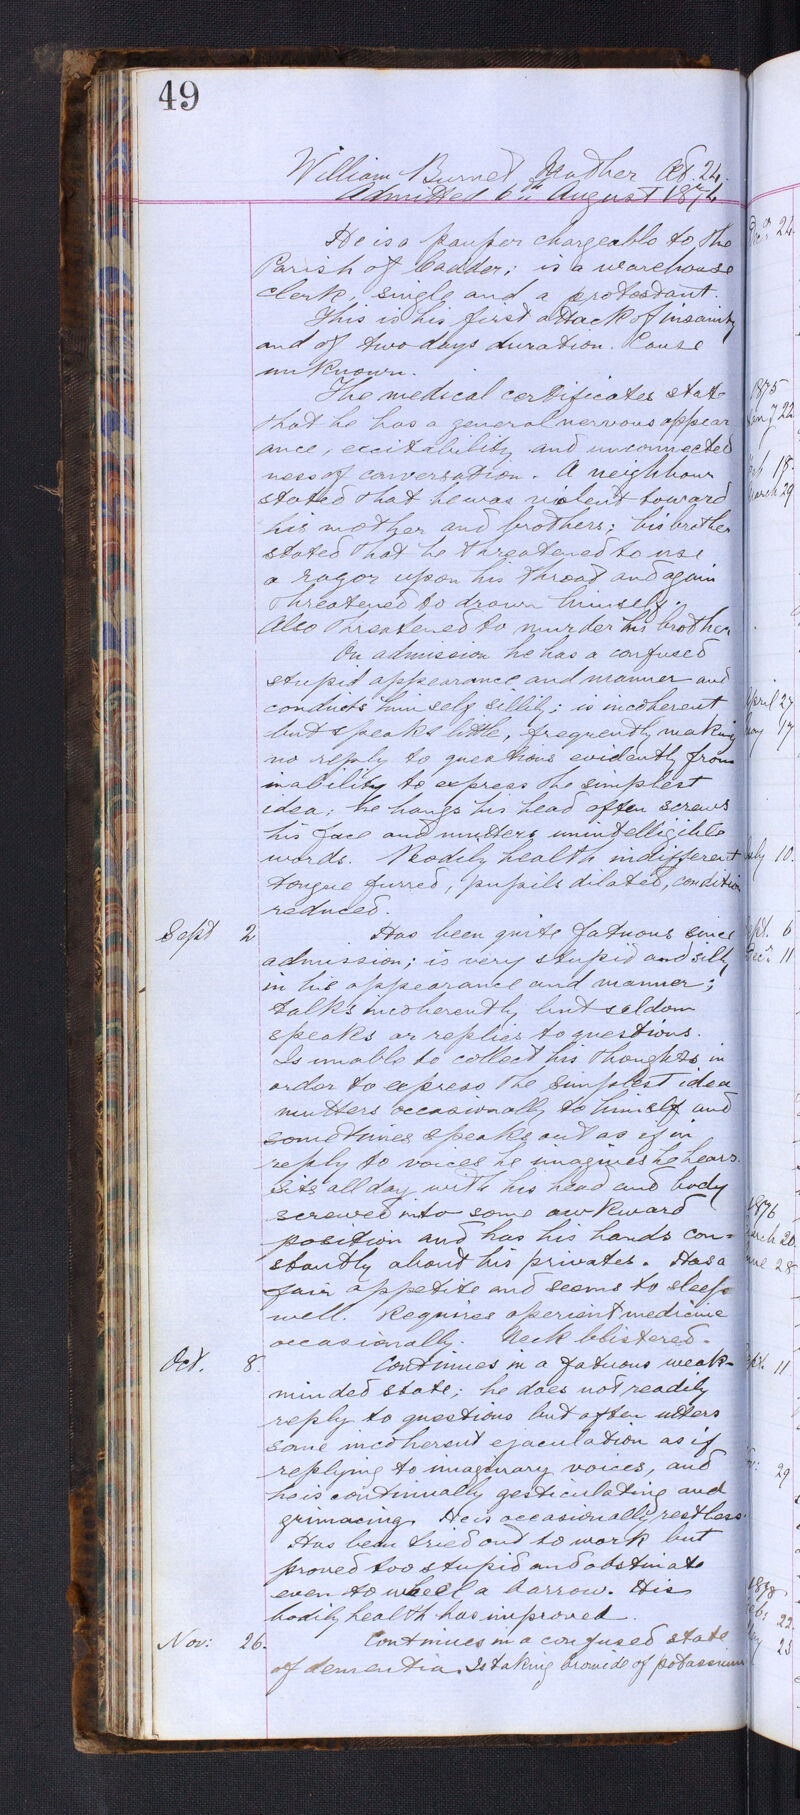 49
William Burnet Mather Æt. 24.
Admitted 6th August 1874
He is a pauper chargeable to the
Parish of Cadder; is a warehouse
clerk, single and a protestant.
This is his first attack of insanity
and of two days duration. Cause
unknown.
The medical certificates state
that he has a general nervous appear
ance, excitability and unconnected
ness of conversation. A neighbour
stated that he was violent toward
his mother and brothers; his brother
stated that he threatened to use
a razor upon his throat and again
threatened to drown himself.
Also threatened to murder his brother
On admission he has a confused
stupid appearance and manner and
conducts himself sillily; is incoherent
but speaks little, frequently making
no reply to questions evidently from
inability to express the simplest
idea; he hangs his head often screws
his face and mutters unintelligible
words. Bodily health indifferent
tongue furred, pupils dilated, condition
reduced.
Sept 2 Has been quite fatuous since
admission; is very stupid and silly
in his appearance and manner;
talks incoherently but seldom
speaks or replies to questions.
Is unable to collect his thoughts in
order to express the simplest idea
mutters occasionally to himself and
sometimes speaks out as if in
reply to voices he imagines he hears.
Sits all day with his head and body
screwed into some awkward
position and has his hands con=
stantly about his privates. Has a
fair appetite and seems to sleep
well. Requires aperient medicine
occasionally. Neck blistered.
Oct. 8. Continues in a fatuous weak-
minded state; he does not readily
reply to questions but often utters
some incoherent ejaculation as if
replying to imaginary voices, and
he is continually gesticulating and
grimacing. He is occasionally restless.
Has been tried out to work but
proved too stupid and obstinate
even to wheel a barrow. His
bodily health has improved.
Nov: 26. Continues in a confused state
of dementia. Is taking bromide of potassium
24
1875
22
18.
March 29
April 27
17
July 10.
Sept. 6
11
1876
March 20.
28
Sept. 11
29
1878
22
25